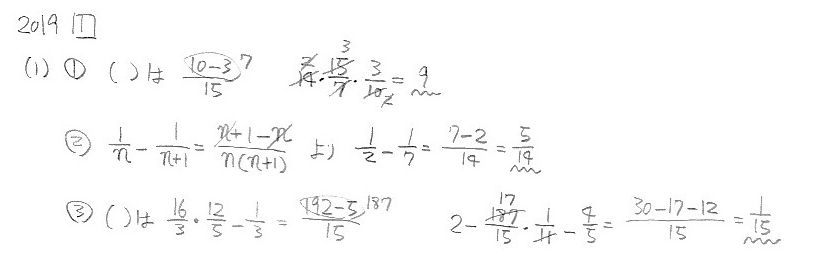 2019 1
(1) ① ( )は (10-3)/15 7 14・15/7・3/10 = 9 2 3 2
② 1/n - 1/(n+1) = (n+1-n)/(n(n+1)) より 1/2 - 1/7 = (7-2)/14 = 5/14
③ ( )は 16/3・12/5 - 1/3 = (192-5)/15 187 2 - 187/15・1/11 - 4/5 = (30-17-12)/15 = 1/15 17